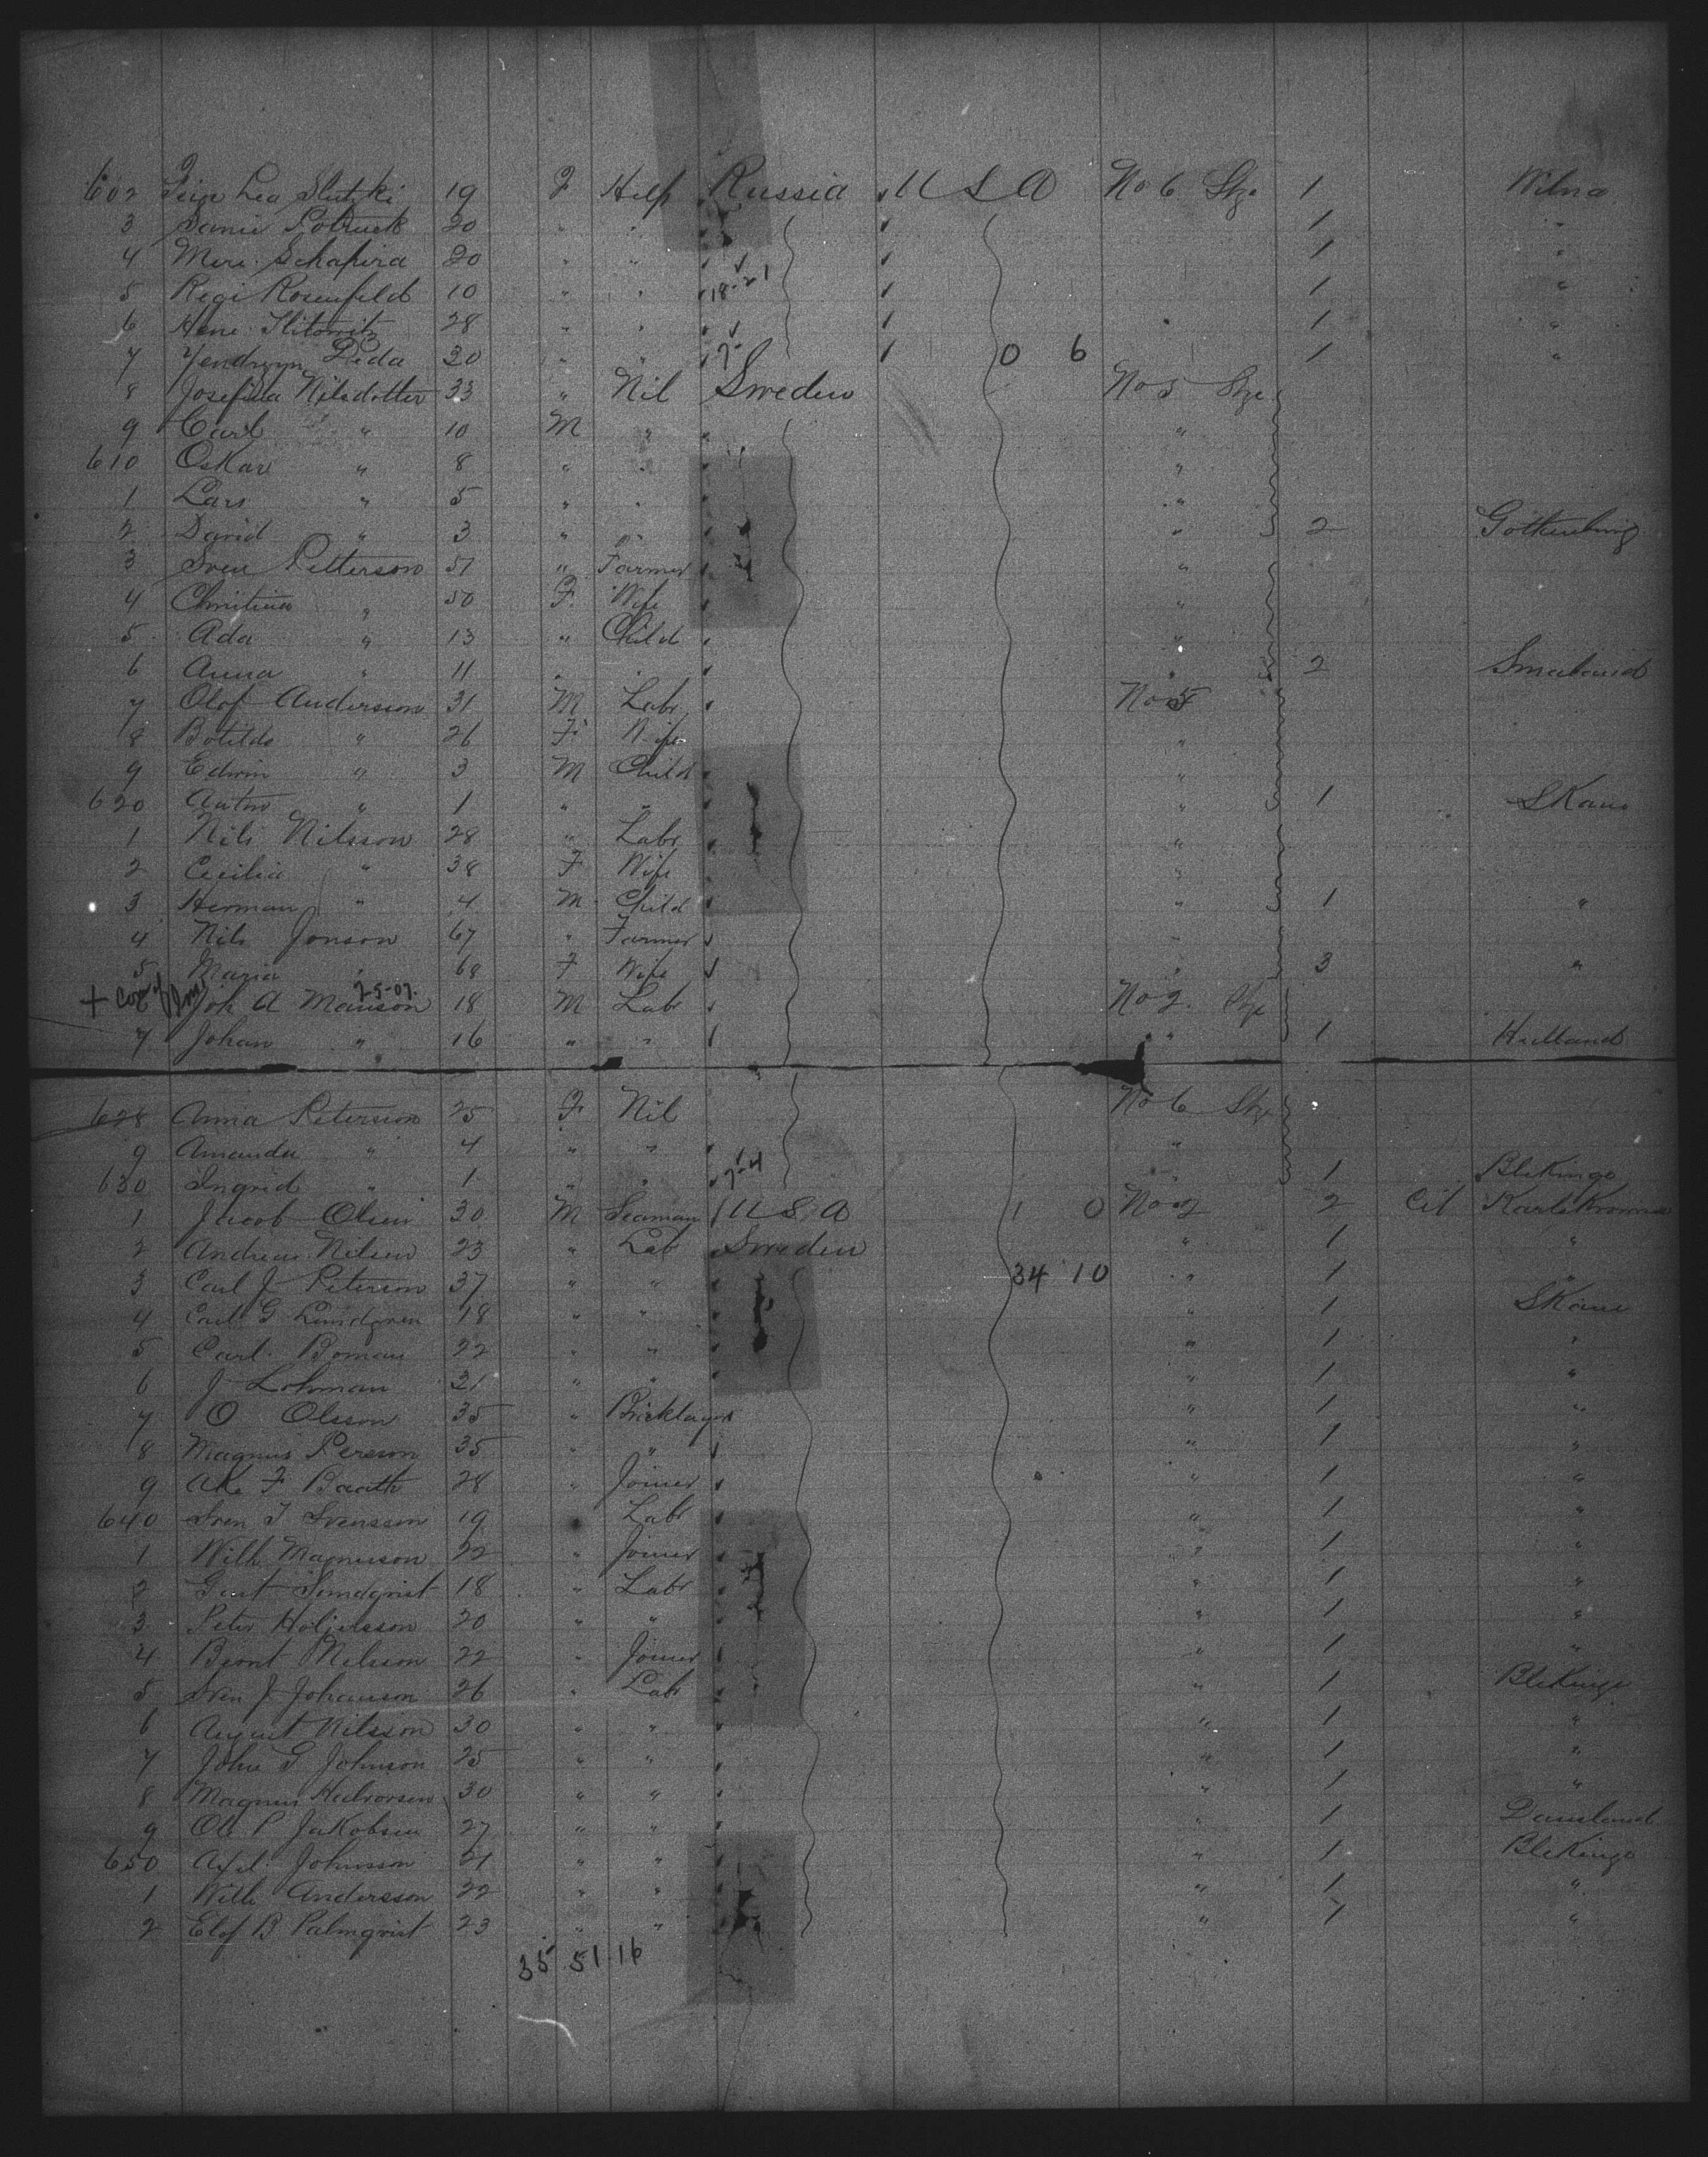 602 Lea Slutzki 19 F Help Russia U S A No 6 Stge 1 Wilna
3 20 " " 1 "
4 Mere Schapira 20 " " 1 "
5 Regi Rosenfeld 10 " " 18-21 1 "
6 Hene 28 " " 1 "
7 Yendrzyn 30 " " 0 6 1 "
8 Josefina Nilsdotter 33 " Nil Sweden No 5 Stge
9 Carl " 10 M " "
610 Oskar " 8 " " "
1 Lars " 5 " " "
2 David " 3 " " " 2 Gothenburg
3 Sven Petterson 51 " Farmer "
4 Christina " 50 F Wife "
5 Ada " 13 " Child "
6 Anna " 11 " " " 2 Smaland
7 Olof Anderson 31 M Labr No 5
8 Botilda " 26 F Wife "
9 Edwin " 3 M Child "
620 Anton " 1 " " " 1 Skane
1 Nils Nilsson 28 " Labr "
2 Cecilia " 38 F Wife "
3 Herman " 4 M Child " 1 "
4 Nils Jonson 67 " Farmer "
5 Maria " 68 F Wife " 3 "
7-5-07.
+ Joh A Manson 18 M Labr No 2 Stge
7 Johan " 16 " " " 1 Halland
628 Anna Peterson 25 F Nil No 6 Stge
9 Amanda " 4 " " "
630 Ingrid " 1 " " 7-4 " 1 Blekinge
1 Jacob Olsen 30 M Seaman U S A 1 0 No 2 2 Cit Karlskrona
2 Andreas Nilsen 23 " Lab Sweden " 1 "
3 Carl J Peterson 37 " " 34 10 " 1 "
4 Carl G Lundgren 18 " " " 1 Skane
5 Carl Boman 22 " " " 1 "
6 J Lohman 21 " " " 1 "
7 O Olsson 35 " Bricklayer " 1 "
8 Magnus Person 35 " " " 1 "
9 Ake F Baath 28 " Joiner " 1 "
640 Sven T Svensson 19 " Labr " 1 "
1 Wilh Magnuson 22 " Joiner " 1 "
2 18 " Labr " 1 "
3 Peter 20 " " " 1 "
4 Nelson 22 " Joiner " 1 "
5 Sven J Johanson 26 " Labr " 1 Blekinge
6 August Nilsson 30 " " " 1 "
7 John G Johnson 25 " " " 1 "
8 Magnus Halvorsen 30 " " " 1 "
9 P Jakobsen 27 " " " 1 Dansland
650 Axel Johnsson 21 " " " 1 Blekinge
1 Wilh Andersson 22 " " " 1 "
2 Elof B Palmqvist 23 " " " 1 "
35 51 16